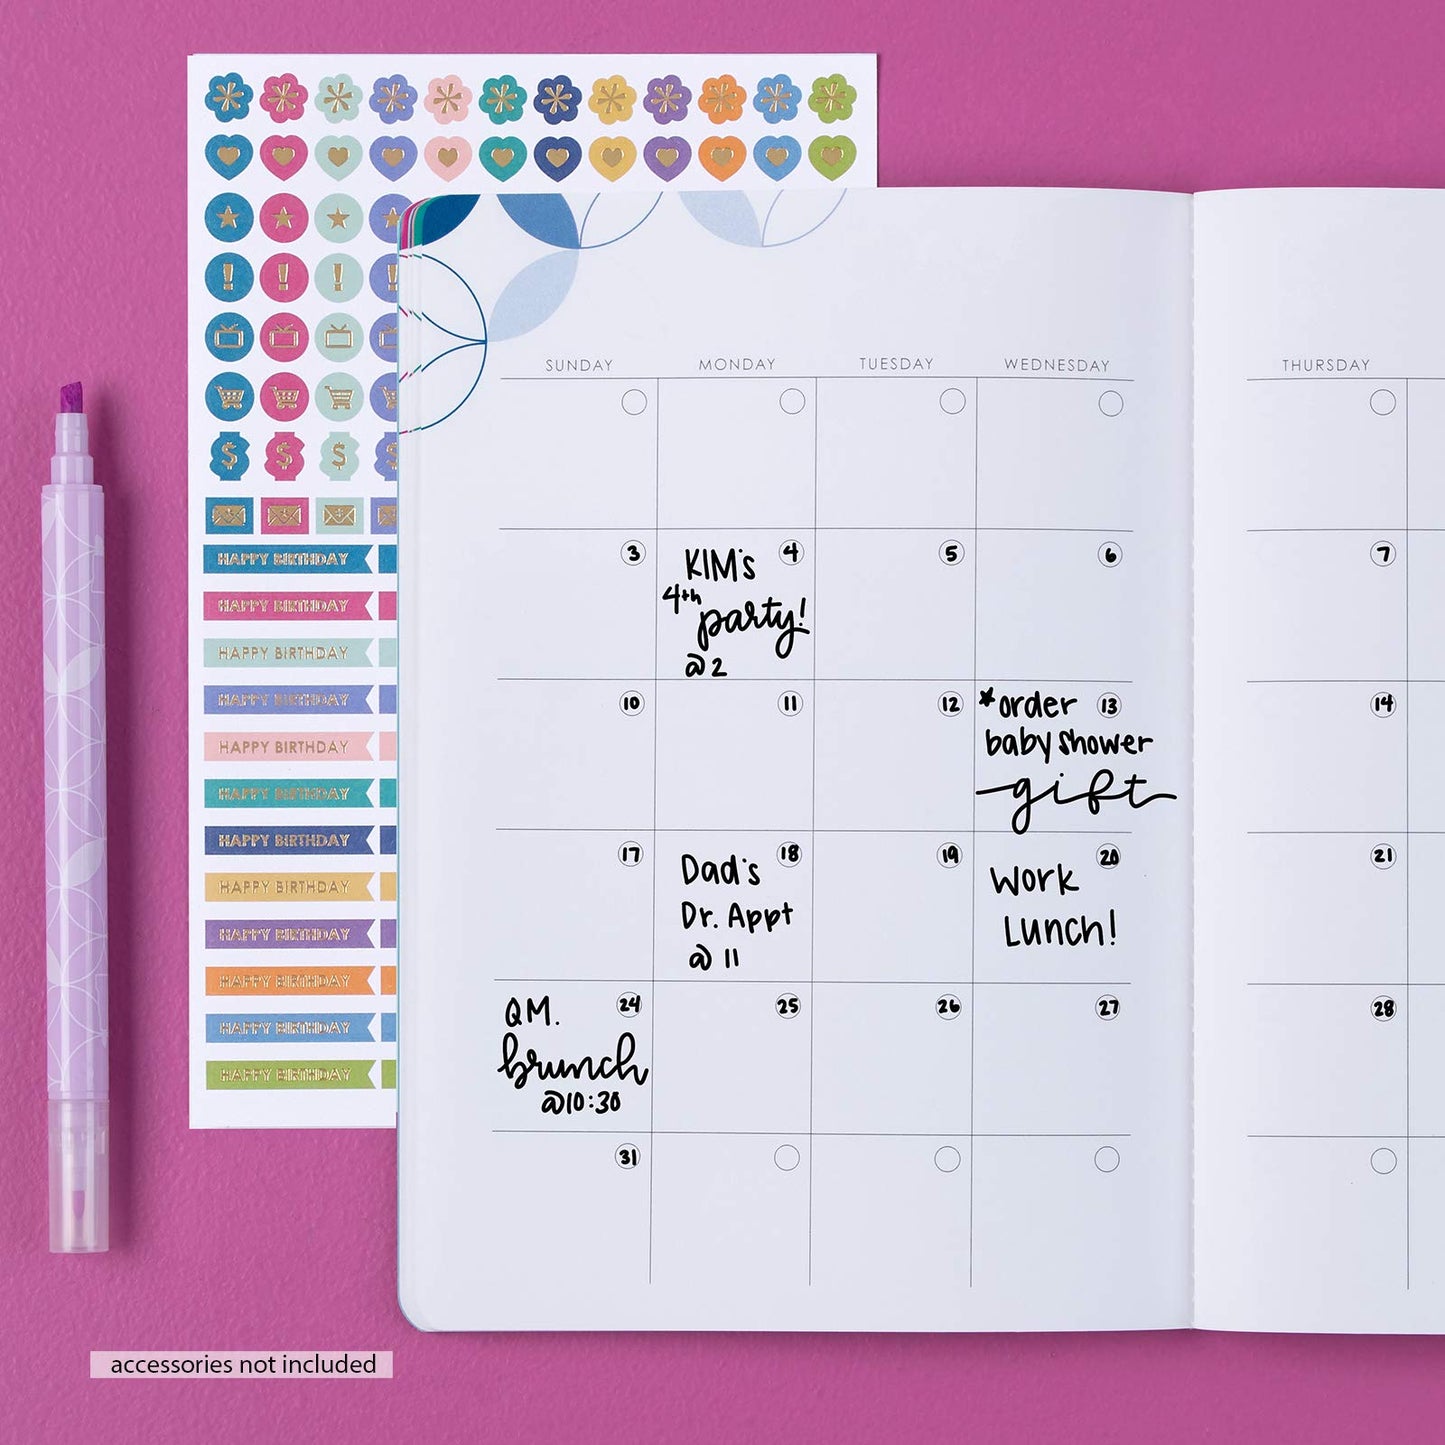 HAPPY BIRTHDAY
HAPPY BIRTHDAY
HAPPY BIRTHDAY
HAPPY BIRTHDAY
HAPPY BIRTHDAY
HAPPY BIRTHDAY
HAPPY BIRTHDAY
HAPPY BIRTHDAY
HAPPY BIRTHDAY
HAPPY BIRTHDAY
HAPPY BIRTHDAY
HAPPY BIRTHDAY
SUNDAY MONDAY TUESDAY WEDNESDAY THURSDAY
3 4 5 6 7
KIM's
4th
party!
@2
10 11 12 13 14
*order
baby shower
gift
17 18 19 20 21
Dad's
Dr. Appt
@ 11
Work
Lunch!
24 25 26 27 28
QM.
brunch
@10:30
31
accessories not included